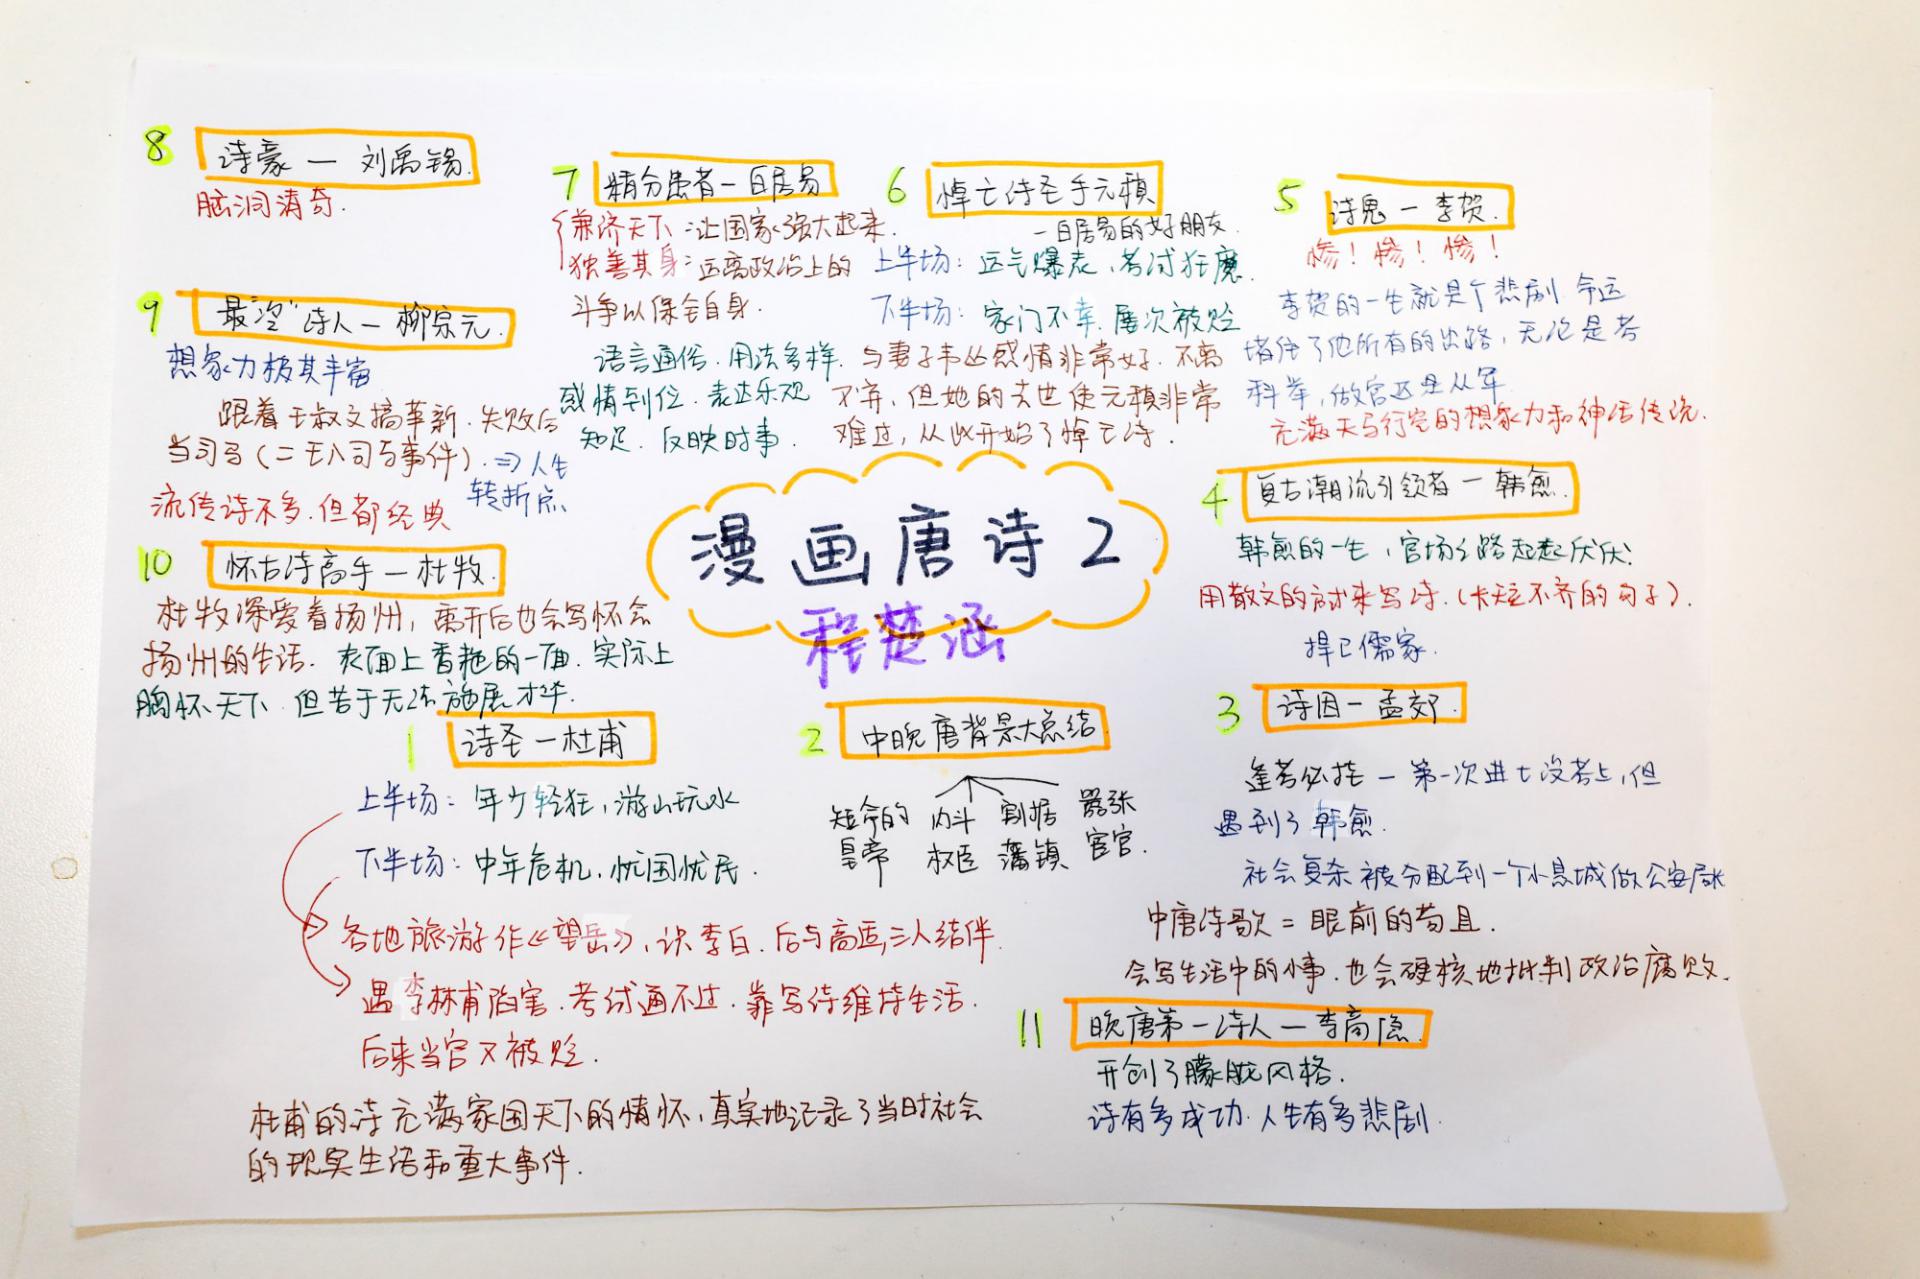 漫画唐诗2
程楚涵
1 诗圣一杜甫
上半场：年少轻狂，游山玩水
下半场：中年危机，忧国忧民.
各地旅游作《望岳》，识李白.后与高适三人结伴.
遇李林甫陷害.考试通不过.靠写诗维持生活.
后来当官又被贬.
杜甫的诗充满家国天下的情怀，真实地记录了当时社会
的现实生活和重大事件.
2 中晚唐背景大总结
短命的
皇帝
内斗
权臣
割据
藩镇
嚣张
宦官.
3 诗囚一孟郊.
逢考必挂一第一次进士没考上，但
遇到了韩愈.
社会复杂 被分配到一个小县城做公安局长
中唐诗歌=眼前的苟且.
会写生活中的小事.也会硬核地批判政治腐败.
4 复古潮流引领者一韩愈.
韩愈的一生，官场之路起起伏伏.
用散文的方式来写诗.(长短不齐的句子).
捍卫儒家.
5 诗鬼一李贺.
惨！惨！惨！
李贺的一生就是个悲剧.命运
堵住了他所有的出路，无论是考
科举，做官还是从军
充满天马行空的想象力和神话传说.
6 悼亡诗圣手元稹
一白居易的好朋友.
上半场：运气爆表，考试狂魔.
下半场：家门不幸.屡次被贬
与妻子韦丛感情非常好.不离
不弃，但她的去世使元稹非常
难过，从此开始了悼亡诗.
7 精分患者一白居易
兼济天下：让国家强大起来.
独善其身：远离政治上的
斗争以保全自身.
语言通俗.用法多样.
感情到位.表达乐观
知足.反映时事.
8 诗豪一刘禹锡.
脑洞清奇.
9 最"冷"诗人一柳宗元.
想象力极其丰富
跟着王叔文搞革新.失败后
当司马(二王八司马事件).⇒人生
转折点
流传诗不多.但都经典
10 怀古诗高手一杜牧.
杜牧深爱着扬州，离开后也会写怀念
扬州的生活.表面上香艳的一面.实际上
胸怀天下.但苦于无法施展才华.
11 晚唐第一诗人一李商隐.
开创了朦胧风格.
诗有多成功.人生有多悲剧.